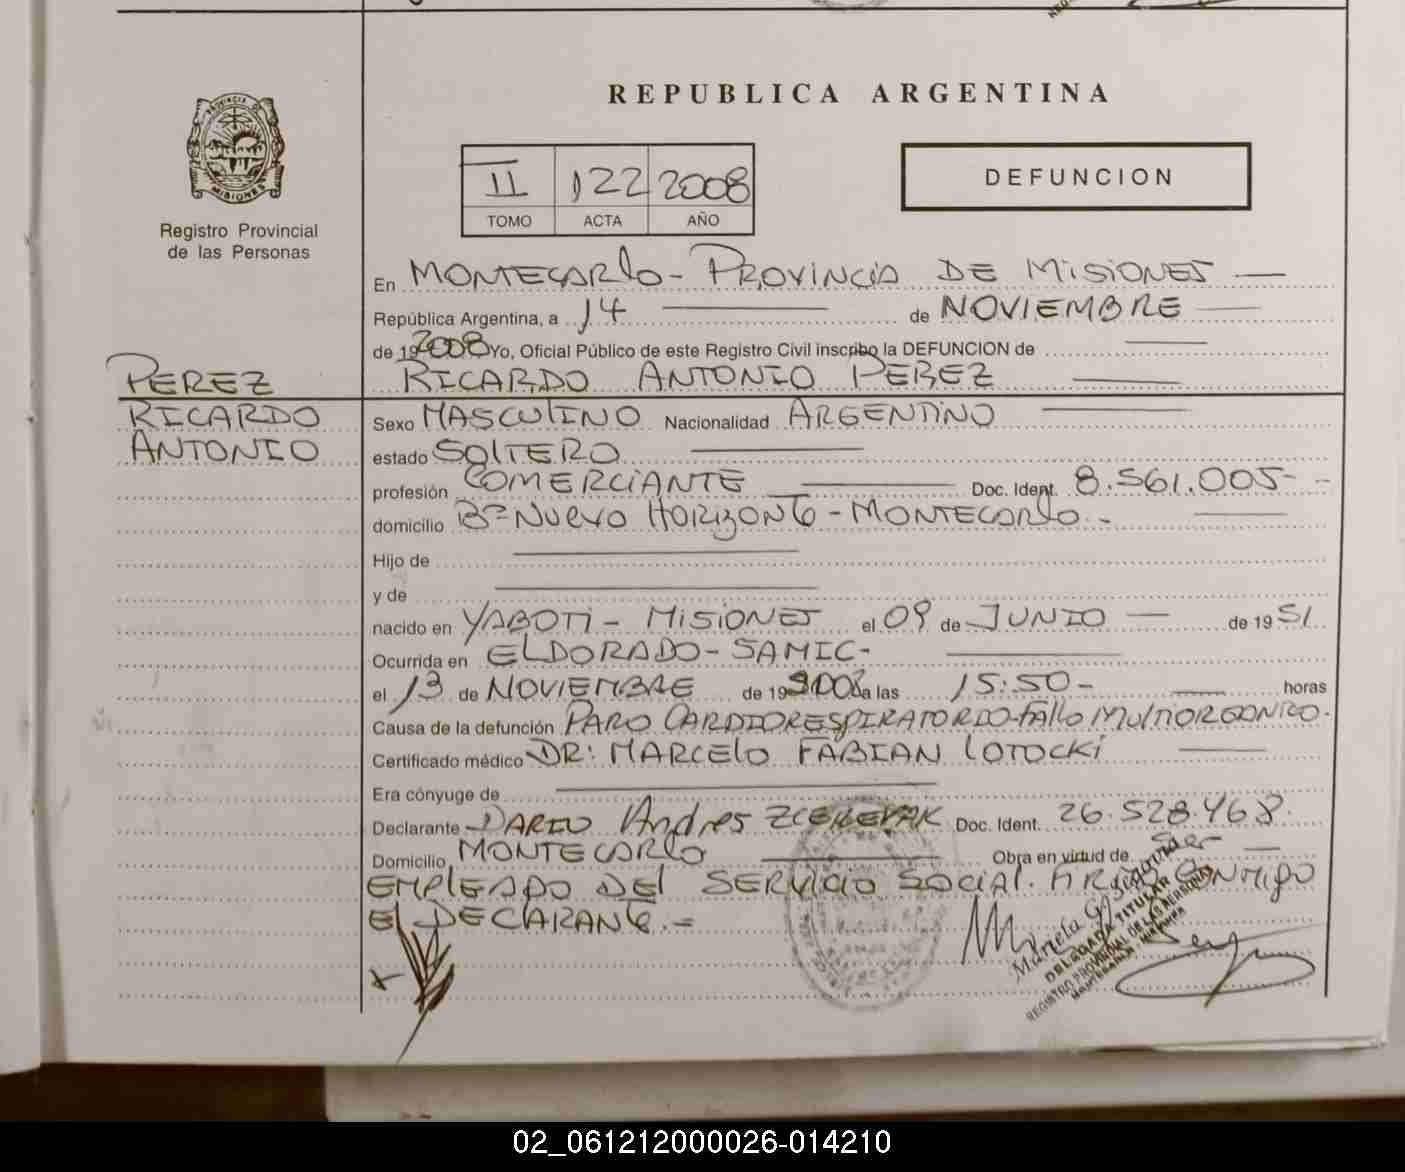 REPUBLICA ARGENTINA
PROVINCIA DE
MISIONES
Registro Provincial
de las Personas
II 122 2008
TOMO ACTA AÑO
DEFUNCION
En MONTECARLO - PROVINCIA DE MISIONES
República Argentina, a 14 de NOVIEMBRE
de 19 2008 Yo, Oficial Público de este Registro Civil inscribo la DEFUNCION de
RICARDO ANTONIO PEREZ
PEREZ
RICARDO
ANTONIO
Sexo MASCULINO Nacionalidad ARGENTINO
estado SOLTERO
profesión COMERCIANTE Doc. Ident. 8.561.005-
domicilio Bº NUEVO HORIZONTE - MONTECARLO.-
Hijo de
y de
nacido en YABOTI - MISIONES el 09 de JUNIO de 19 51
Ocurrida en ELDORADO - SAMIC-
el 13 de NOVIEMBRE de 19 2008 a las 15:50- horas
Causa de la defunción PARO CARDIORESPIRATORIO-FALLO MULTIORGANICO.
Certificado médico DR: MARCELO FABIAN LOTOCKI
Era cónyuge de
Declarante DARIO Andres ZCEREPAK Doc. Ident. 26.528.468.
Domicilio MONTECARLO Obra en virtud de Ser
EMPLEADO DEL SERVICIO SOCIAL. FIRMA CONMIGO
EL DECLARANTE.-
Mariela G.
DELEGADA TITULAR
REGISTRO PROVINCIAL DE LAS PERSONAS
02_061212000026-014210